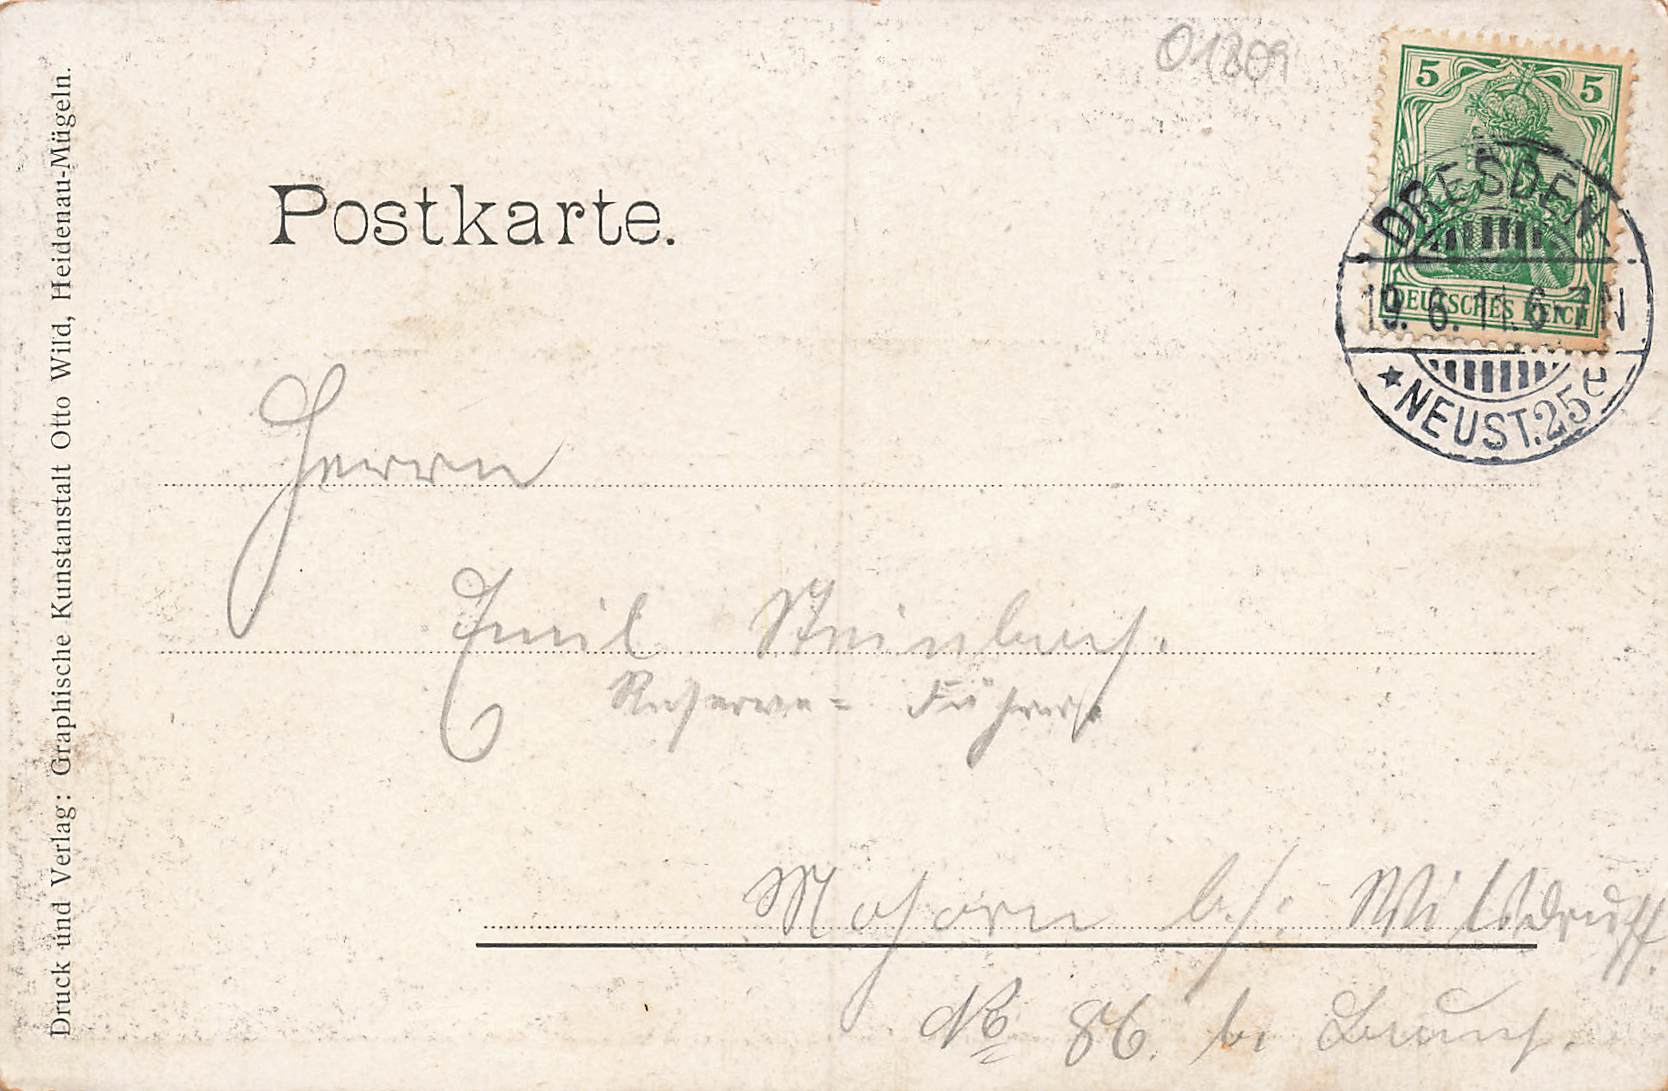 01809
5 5
DEUTSCHES REICH
DRESDEN
19. 6. 11. 6-7N
* NEUST. 25 e
Postkarte.
Herrn
Emil Steinbach.
Reserve= Führer
Mohorn b/: Wilsdruff.
No 86. bei
Druck und Verlag: Graphische Kunstanstalt Otto Wild, Heidenau-Mügeln.